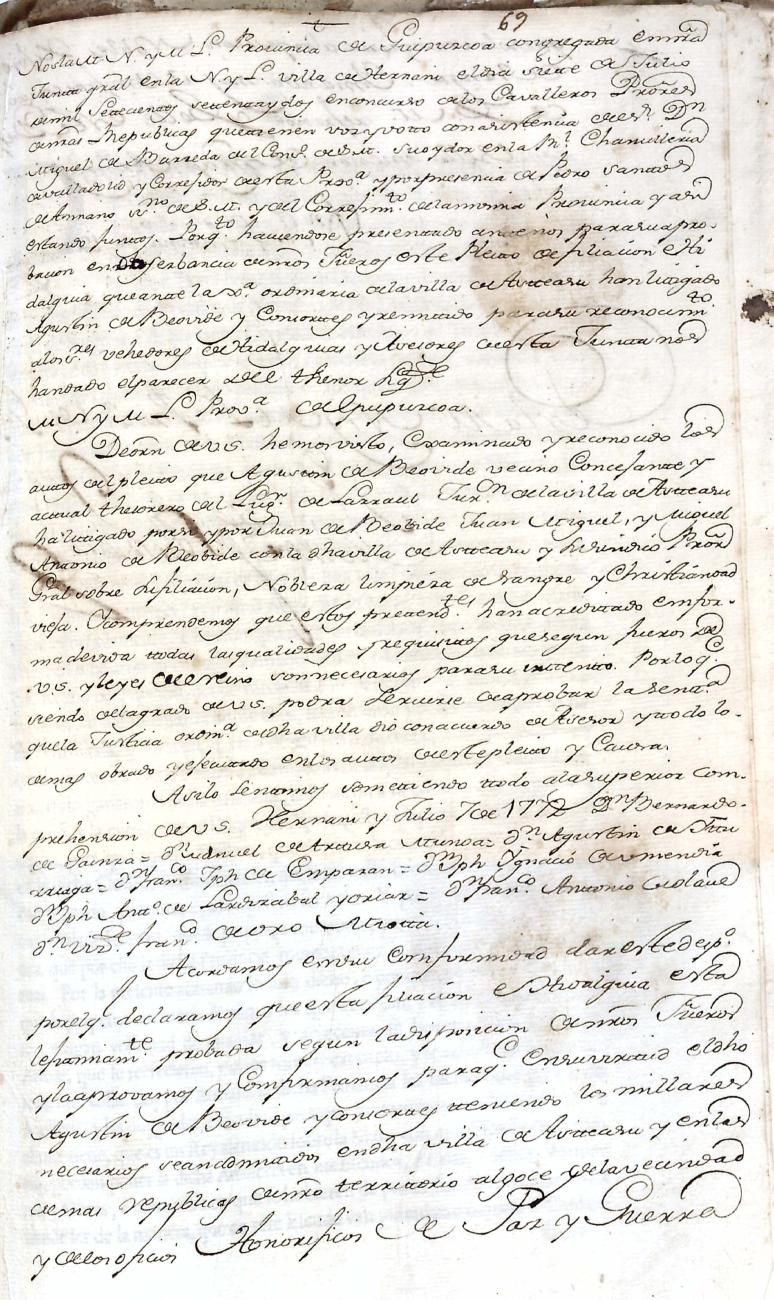 69
Nos la M. N. y M. L. Provincia de Guipuzcoa congregada en nrã
Junta gral en la N. y L. villa de Hernani el dia siete de Julio
de mil Setecientos setenta y dos en concurso de los Cavalleros Prôres
de nrãs Republicas que tienen voz y votto con asistencia de el Sr. Dn
Miguel de Barreda del Cons.º de S. M. su oydor en la Rl. Chancilleria
de valladolid y Correxidor de esta Prov.ª y por presencia de Pedro
de S. M. y del Correximto. de la misma Provincia y asi
estando Juntos. Porqto. haviendose presentado ante nos para su apro-
bacion en observancia de nros Fueros este Pleito de filiacion e Hi
dalguia que ante la Jª. ordinaria de la villa de Asteasu han litigado
Agustin de Beovide y Consortes y remitido para su reconocimto.
a los Sres veheedores de Hidalguias y Asesores de esta Junta nos
han dado el parecer del thenor sigte.
M. N. y M. L. Prov.ª de Guipuzcoa.
De orn de V.S. hemos visto, Examinado y reconocido los
autos del pleito que Agustin de Beovide vecino Concejante y
actual thesorero del Lugr. de Larraul Jurn. de la villa de Asteasu
ha litigado por si y por Juan de Beobide Juan Miguel, y Miguel
Antonio de Beobide con la dha villa de Asteasu y su sindico Prôr
Gral sobre su filiacion, Nobleza limpieza de sangre y Christiandad
vieja. Y comprendemos que estos pretendtes. han acreditado en for-
ma devida todas las qualidades y requisitos que segun fueros de
V.S. y leyes de el reino son necesarios para su intento. Por lo q.
siendo del agrado de V.S. podra servirse de aprobar la sentª.
que la Justicia ordinª. de dha villa dio con acuerdo de Asesor y todo lo-
demas obrado y executado en los autos de este pleito y Causa.
Asi lo sentimos sometiendo todo a la superior com-
prehension de V.S. Hernani y Julio 7 de 1772 Dn Bernardo
de Gainza = Dn Manuel de Munoa = Dn Agustin de Itu
rriaga = Dn Franco. Jph de Emparan = Dn Jph Ygnacio de Mendia
Dn Jph Anto. de Lardizabal y oriar = Dn Franco. Antonio de olave
Dn Franco. de oro Miota.
Acordamos en su Conformidad dar este desp.º
por el q. declaramos que esta filiacion e Hidalguia está
lexitimamte. probada segun la disposicion de nros Fueros
y la aprovamos y Confirmamos para q. en su virtud el dho
Agustin de Beovide y consortes teniendo los millares
necesarios sean admitidos en dha villa de Asteasu y en las
demas republicas de nro territorio al goce de la vecindad
y de los oficios Honorificos de Paz y Guerra